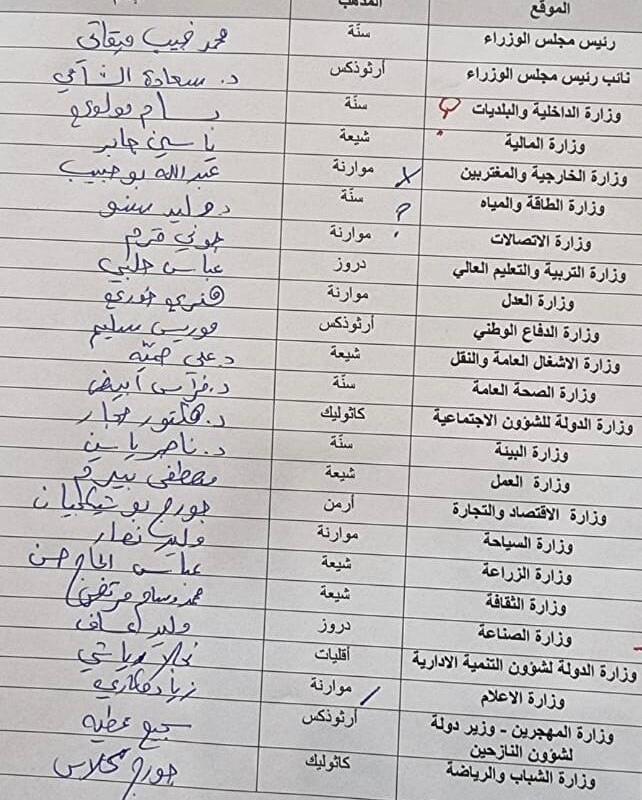 الموقع المذهب
رئيس مجلس الوزراء سنّة محمد نجيب ميقاتي
نائب رئيس مجلس الوزراء أرثوذكس د. سعادة الشامي
وزارة الداخلية والبلديات سنّة بسام مولوي
وزارة المالية شيعة ياسين جابر
وزارة الخارجية والمغتربين موارنة عبدالله بوحبيب
وزارة الطاقة والمياه سنّة د. وليد سنو
وزارة الاتصالات موارنة جوني قرم
وزارة التربية والتعليم العالي دروز عباس حلبي
وزارة العدل موارنة هنري خوري
وزارة الدفاع الوطني أرثوذكس موريس سليم
وزارة الاشغال العامة والنقل شيعة د. علي حميّه
وزارة الصحة العامة سنّة د. فراس أبيض
وزارة الدولة للشؤون الاجتماعية كاثوليك د. هكتور حجار
وزارة البيئة سنّة د. ناصر ياسين
وزارة العمل شيعة مصطفى بيرم
وزارة الاقتصاد والتجارة أرمن جورج بوشيكيان
وزارة السياحة موارنة وليد نصار
وزارة الزراعة شيعة عباس الحاج حسن
وزارة الثقافة شيعة محمد وسام مرتضى
وزارة الصناعة دروز وليد عساف
وزارة الدولة لشؤون التنمية الادارية أقليات نجلا رياشي
وزارة الاعلام موارنة زياد مكاري
وزارة المهجرين - وزير دولة أرثوذكس سجيع عطيه
لشؤون النازحين
وزارة الشباب والرياضة كاثوليك جورج كلاس